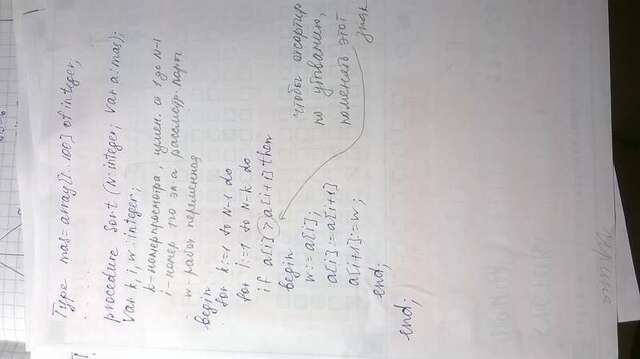 Type mas=array[1..100] of integer;
procedure Sort (N:integer; Var a:mas);
Var k, i, w: integer;
k-номер просмотра, измен. от 1 до N-1
i-номер 1го эл-а рассматр. пары
w-рабоч переменная
begin
for k:=1 to N-1 do
for i:=1 to N-k do
if a[i] > a[i+1] then
begin
w:=a[i];
a[i]:=a[i+1]
a[i+1]:=w;
end;
end;
чтобы отсортир
по убыванию,
поменять этот
знак